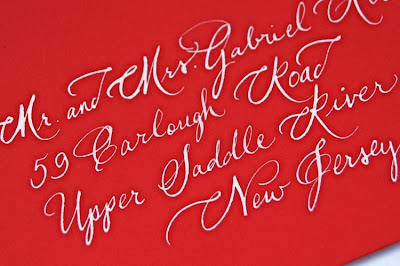 Mr. and Mrs. Gabriel
59 Carlough Road
Upper Saddle River
New Jersey